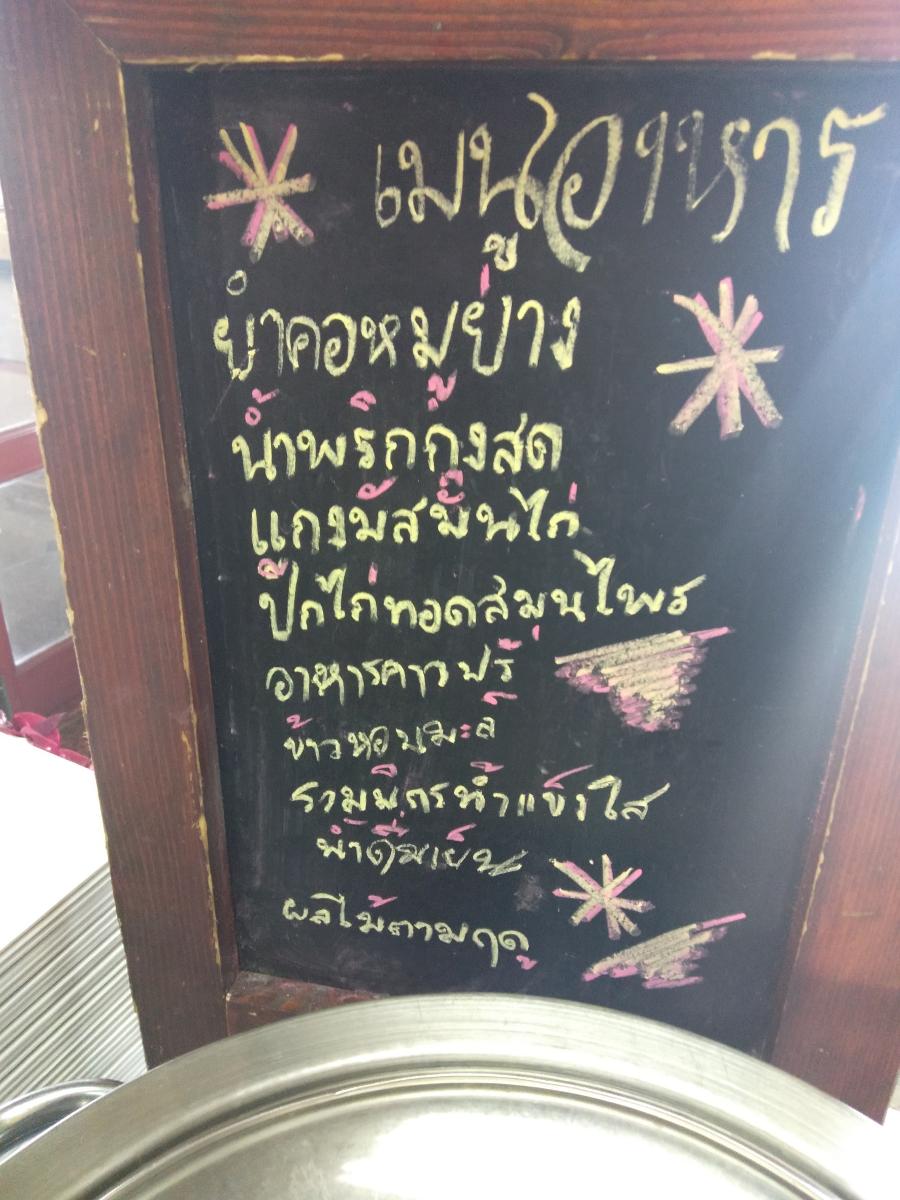 เมนูอาหาร
ยำคอหมูย่าง
น้ำพริกกุ้งสด
แกงมัสมั่นไก่
ปีกไก่ทอดสมุนไพร
อาหารคาวฟรี
ข้าวหอมมะลิ
รวมมิตรน้ำแข็งใส
น้ำดื่มเย็น
ผลไม้ตามฤดู